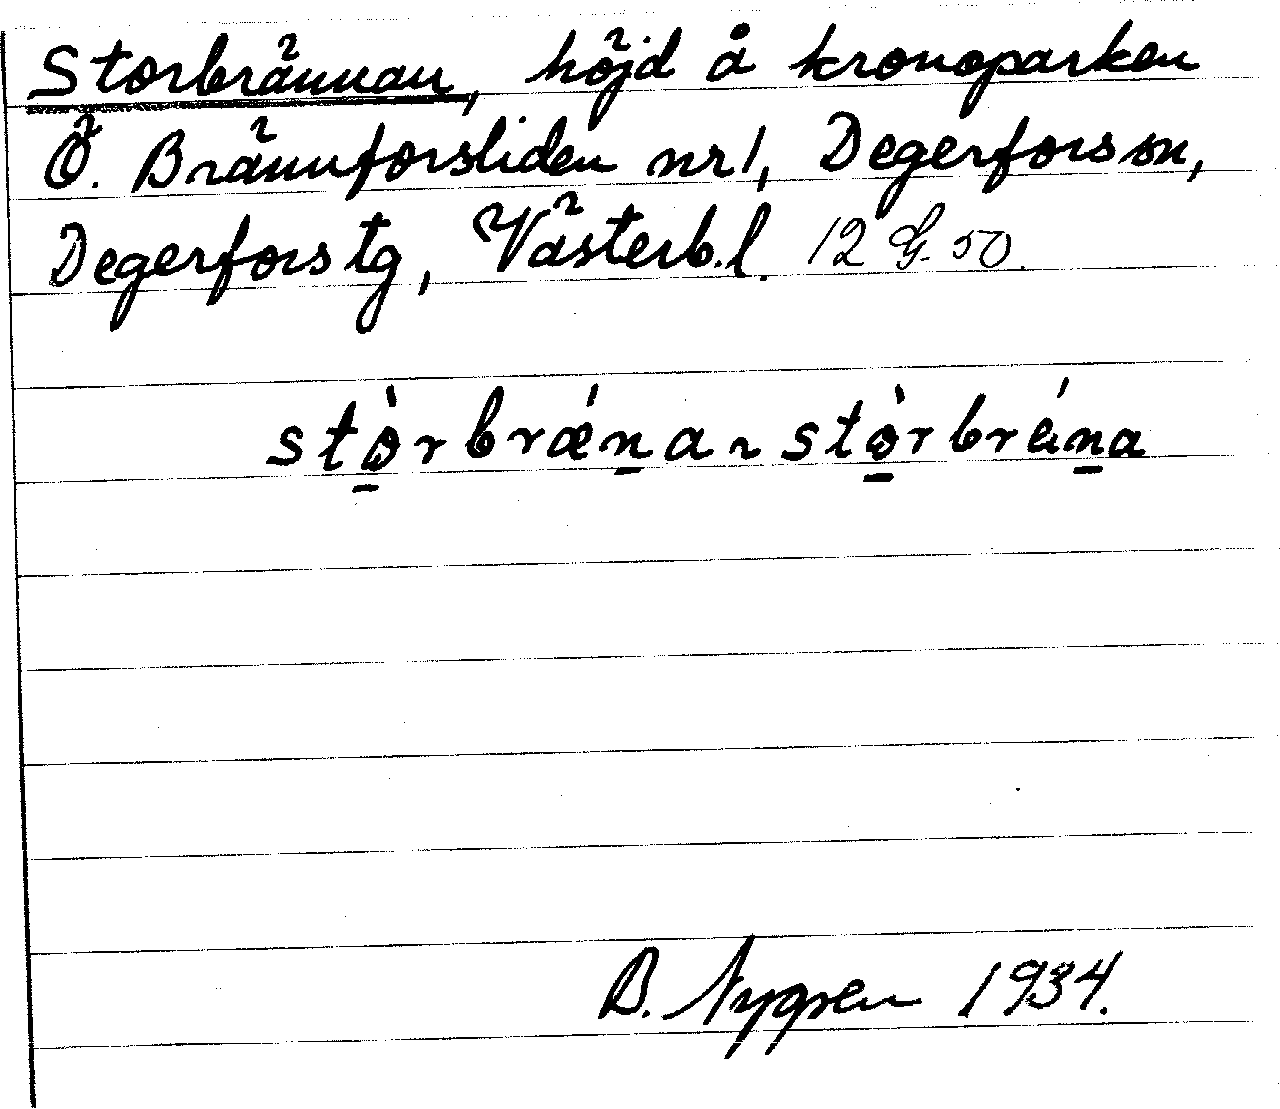 Storbrännan, höjd å kronoparken
Ö. Brännforsliden nr 1, Degerfors sn,
Degerfors tg, Västerb. l. 12 G. 50.
stò̱rbrǽṉa ~ stò̱rbrä́ṉa
B. Nygren 1934.